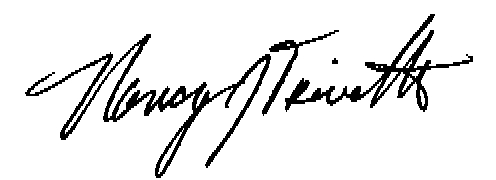 Nancy J Trivett